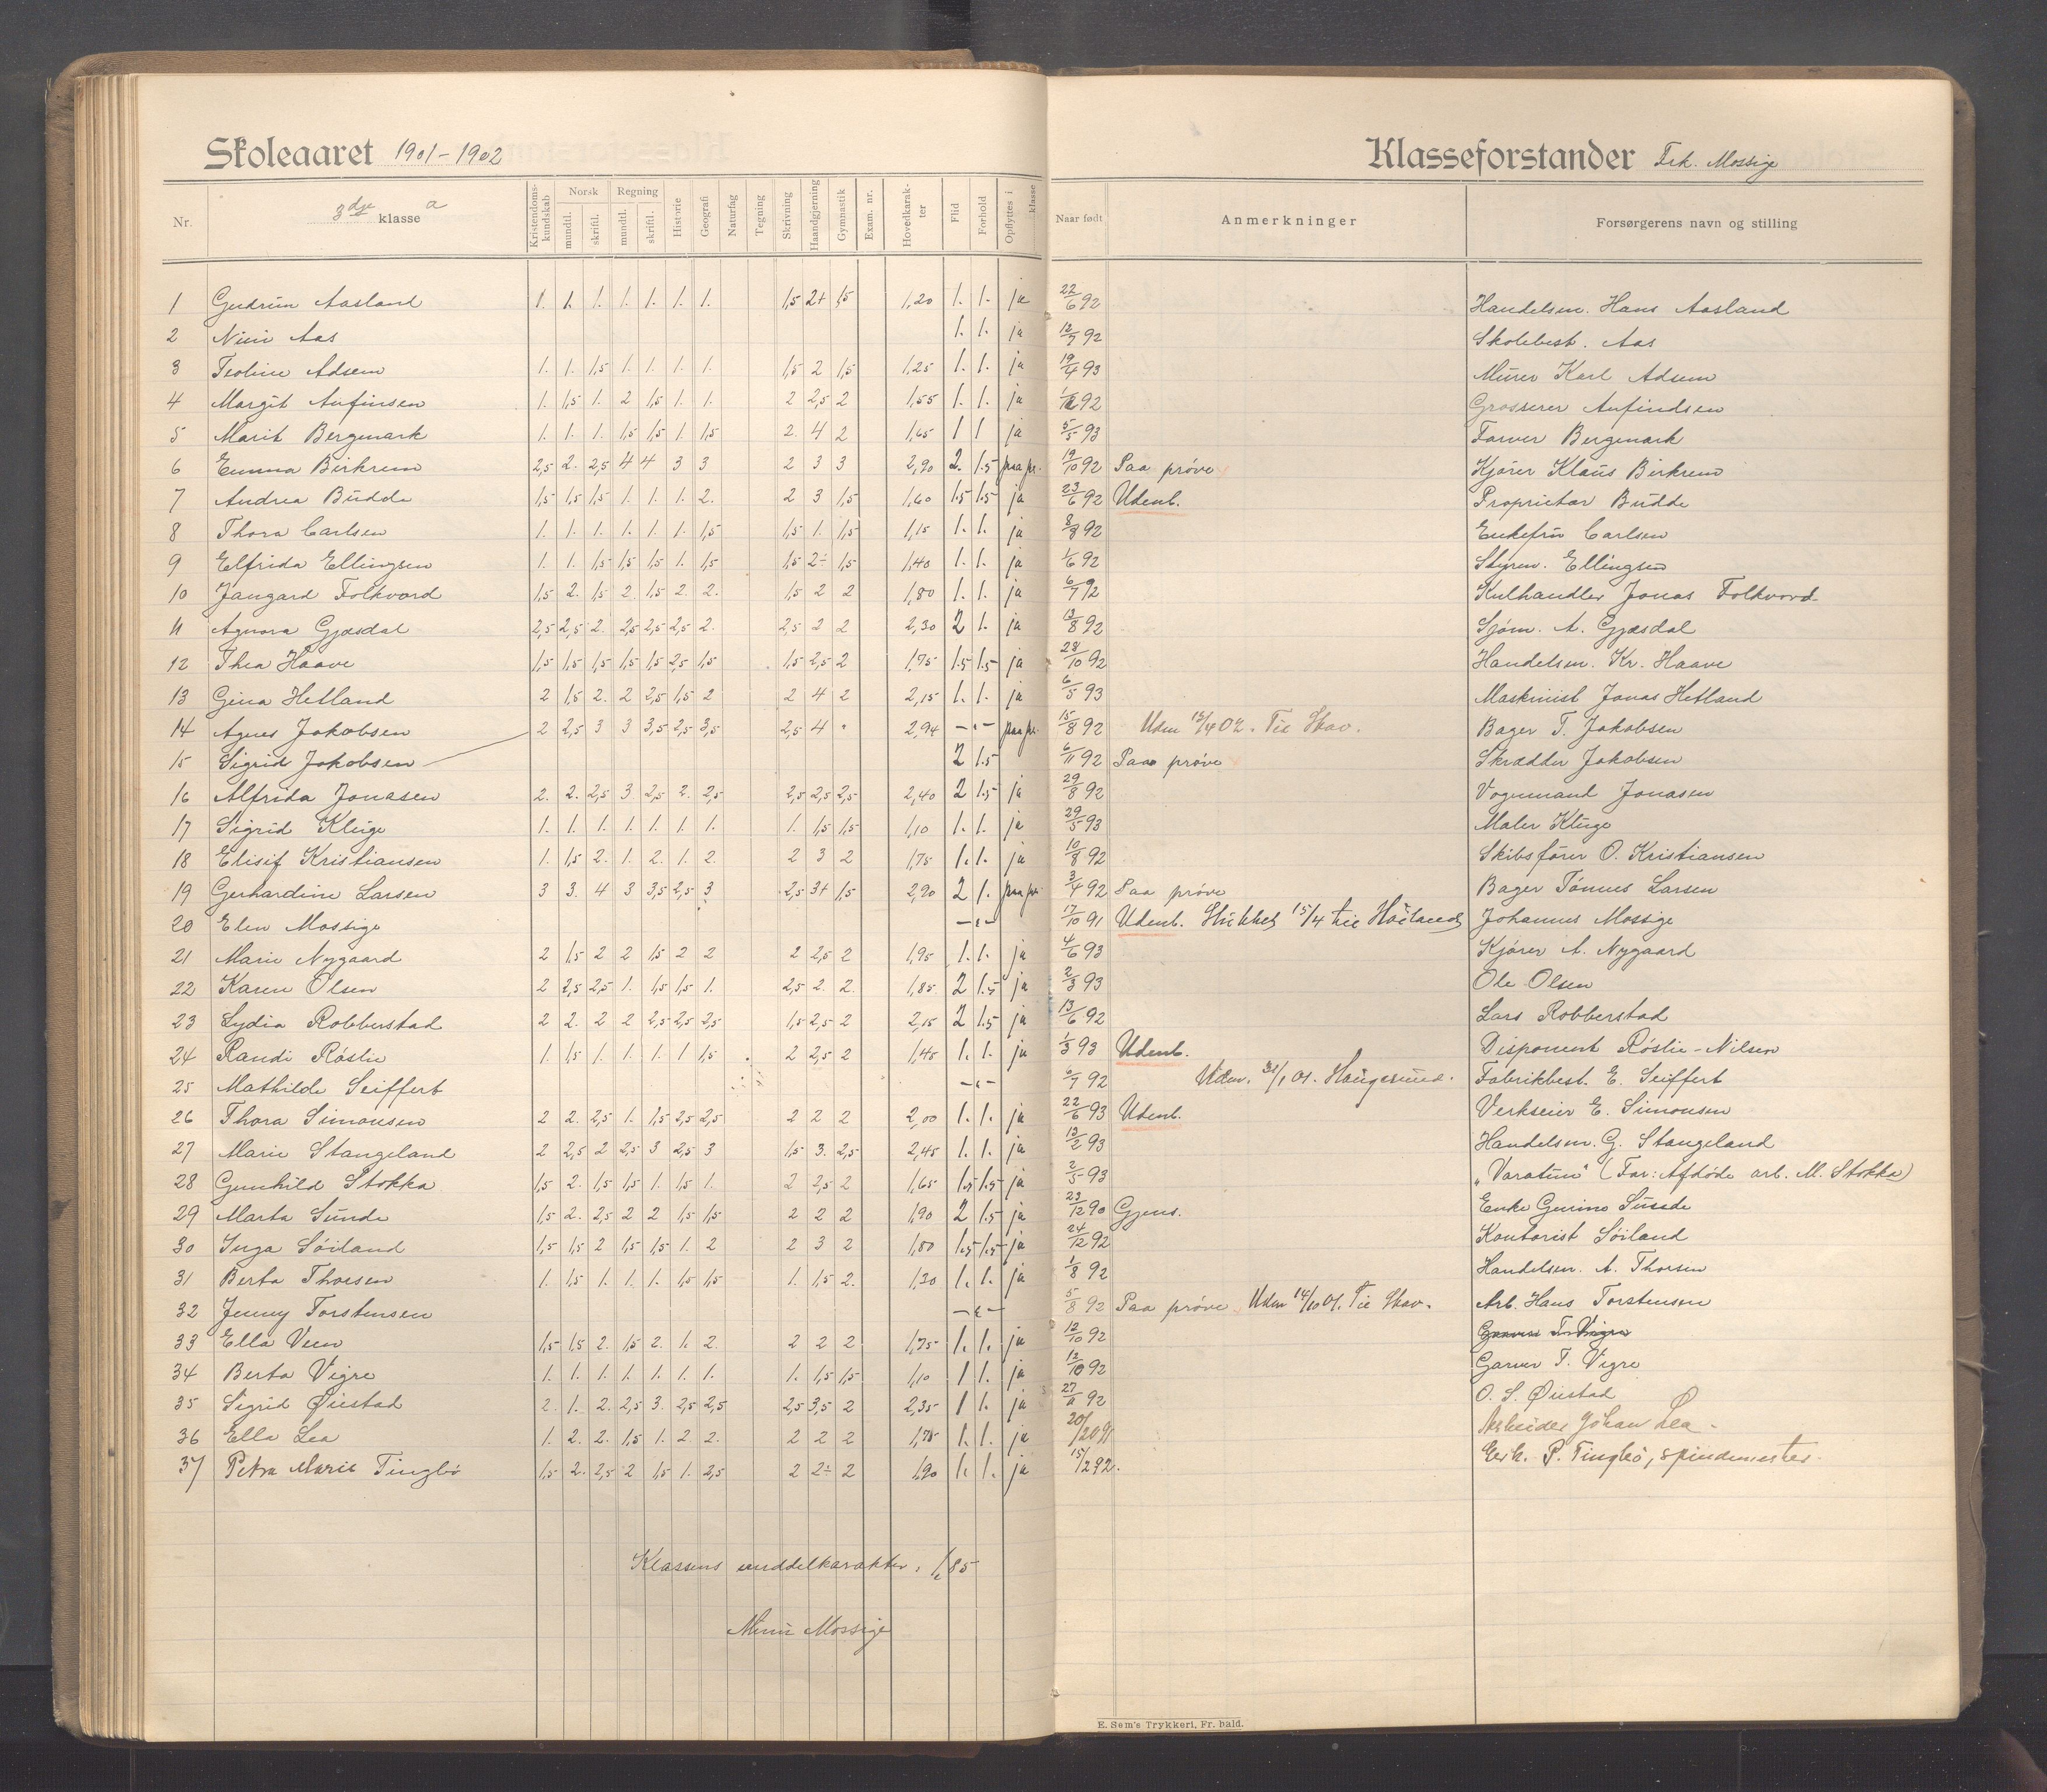 Skoleaaret 1901-1902
Klasseforstander Frk. Mossige
Nr.
3dje klasse a
Kristendoms-kundskab
Norsk
mundtl.
skriftl.
Regning
mundtl.
skriftl.
Historie
Geografi
Naturfag
Tegning
Skrivning
Haandgjerning
Gymnastik
Exam. nr.
Hovedkarakter
Flid
Forhold
Opflyttes i klasse
Naar født
Anmerkninger
Forsørgerens navn og stilling
1 Gudrun Aasland 1. 1. 1. 1. 1. 1. 1. 1,5 2+ 1,5 1,20 1. 1. ja 22/6 92 Handelsm. Hans Aasland
2 Nini Aas 1. 1. ja 12/7 92 Skolebest. Aas
3 Teoline Adsem 1. 1. 1,5 1. 1. 1. 1. 1,5 2 1,5 1,25 1. 1. ja 19/4 93 Murer Karl Adsem
4 Margit Anfinsen 1. 1,5 1. 2 1,5 1. 1. 2 2,5 2 1,55 1. 1. ja 92 Grosserer Anfindsen
5 Marit Bergmark 1. 1. 1. 1,5 1,5 1 1,5 2. 4 2 1,65 1 1 ja 5/5 93 Farver Bergmark
6 Emma Birkrem 2,5 2. 2,5 4 4 3 3 2 3 3 2,90 2. 1.5 paa pr. 19/10 92 Paa prøve Kjører Klaus Birkrem
7 Andrea Budde 1,5 1,5 1,5 1. 1. 1. 2. 2 3 1,5 1,60 1.5 1.5 ja 23/6 92 Udenb. Proprietær Budde
8 Thora Carlsen 1. 1. 1. 1. 1. 1. 1,5 1,5 1. 1,5 1,15 1. 1. ja 8/8 92 Enkefru Carlsen
9 Elfrida Ellingsen 1. 1. 1,5 1,5 1,5 1. 1,5 1,5 2÷ 1,5 1,40 1. 1. ja 1/6 92 Styrm. Ellingsen
10 Jangard Folkvord 1,5 2. 1,5 2. 1,5 2. 2. 1,5 2 2 1,80 1. 1. ja 6/7 92 Kulhandler Jonas Folkvord
11 Agnora Gjæsdal 2,5 2,5 2. 2,5 2,5 2,5 2. 2,5 2 2 2,30 2 1. ja 13/8 92 Sjøm. A. Gjæsdal
12 Thea Haave 1,5 1,5 1,5 1,5 1,5 2,5 1,5 1,5 2,5 2 1,75 1.5 1.5 ja 28/10 92 Handelsm. Kr. Haave
13 Gina Hetland 2 1,5 2. 2 2,5 1,5 2 2 4 2 2,15 1. 1. ja 6/5 93 Maskinist Jonas Hetland
14 Agnes Jakobsen 2 2,5 3 3 3,5 2,5 3,5 2,5 4 " 2,94 -"- paa pr. 15/8 92 Udm 15/4 02. Til Stav. Bager T. Jakobsen
15 Sigrid Jakobsen 2 1.5 6/11 92 Paa prøve Skrædder Jakobsen
16 Alfrida Jonasen 2. 2. 2,5 3 2,5 2. 2,5 2,5 2,5 2,5 2,40 2 1.5 ja 29/8 92 Vognmand Jonasen
17 Sigrid Kluge 1. 1. 1. 1. 1. 1. 1. 1. 1,5 1,5 1,10 1. 1. ja 29/5 93 Maler Kluge
18 Elisif Kristiansen 1. 1,5 2. 1. 2. 1. 2. 2 3 2 1,75 1. 1. ja 10/8 92 Skibsfører O. Kristiansen
19 Gerhardine Larsen 3 3. 4 3 3,5 2,5 3 2,5 3+ 1,5 2,90 2 1. paa pr. 3/4 92 Paa prøve Bager Tønnes Larsen
20 Elen Mossige -"- 17/10 91 Udenb. 15/4 til Johannes Mossige
21 Marie Nygaard 2 1,5 2 2 1,5 2 2 2 2,5 2 1,95 1. 1. ja 4/6 93 Kjører A. Nygaard
22 Karen Olsen 2 2,5 2,5 1. 1,5 1,5 1. 2,5 2. 2. 1,85 2 1.5 ja 2/3 93 Ole Olsen
23 Lydia Robberstad 2 2. 2 2 2,5 2,5 2,5 1,5 2,5 2 2,15 2 1.5 ja 13/6 92 Lars Robberstad
24 Randi Røslie 1. 1,5 1. 1. 1. 1 1,5 2 2,5 2 1,45 1. 1. ja 1/3 93 Udenb. Disponent Røslie-Nilsen
25 Mathilde Seiffert -"- 6/7 92 Udm. 01. Haugesund. Fabrikbest. E. Seiffert
26 Thora Simonsen 2 2. 2,5 1. 1,5 2,5 2,5 2 2 2 2,00 1. 1. ja 22/6 93 Udenb. Verkseier E. Simonsen
27 Marie Stangeland 2 2,5 2 2,5 3 2,5 3 1,5 3. 2,5 2,45 1. 1. ja 13/2 93 Handelsm. G. Stangeland
28 Gunhild Stokka 1,5 2. 1,5 1,5 1. 1,5 1. 2 2,5 2 1,65 1.5 1.5 ja 2/5 93 "Varatun" (Far: Afdøde arb. M. Stokka)
29 Marta Sunde 1,5 2. 2,5 2 2 1,5 1,5 2 2 2 1,90 2 1.5 ja 23/12 90 Gjens. Enke Gurine Sunde
30 Inga Søiland 1,5 1,5 2 1,5 1,5 1. 2 2 3 2 1,80 1.5 1.5 ja 24/12 92 Kontorist Søiland
31 Berta Thorsen 1. 1,5 1. 1. 1. 1,5 1,5 1. 1,5 2. 1,30 1. 1. ja 1/8 92 Handelsm. A. Thorsen
32 Jenny Torstensen -"- 5/8 92 Paa prøve Udm 14/10 01. Til Stav. Arb. Hans Torstensen
33 Ella Veen 1,5 1,5 2. 1,5 2. 1. 2. 2 2 2 1,75 1. 1. ja 12/10 92
34 Berta Vigre 1. 1. 1. 1. 1. 1. 1. 1. 1,5 1,5 1,10 1 1. ja 12/10 92 Garver T. Vigre
35 Sigrid Øiestad 2. 1. 2. 2,5 3. 2,5 2,5 2,5 3,5 2 2,35 1 1. ja 92 O. S. Øiestad
36 Ella Lea 1. 2. 2. 1,5 1. 2 2. 2 2 2 1,75 1. 1. ja Arbeider Johan Lea.
37 Petra Marie Tingbø 1,5 2. 2,5 2 1,5 1. 2,5 2 2÷ 2 1,90 1. 1. ja 15/12 92. Erik. P. Tingbø, spindemester.
Klassens middelkarakter: 1,85
Mimi Mossige
E. Sem's Trykkeri, Fr. hald.